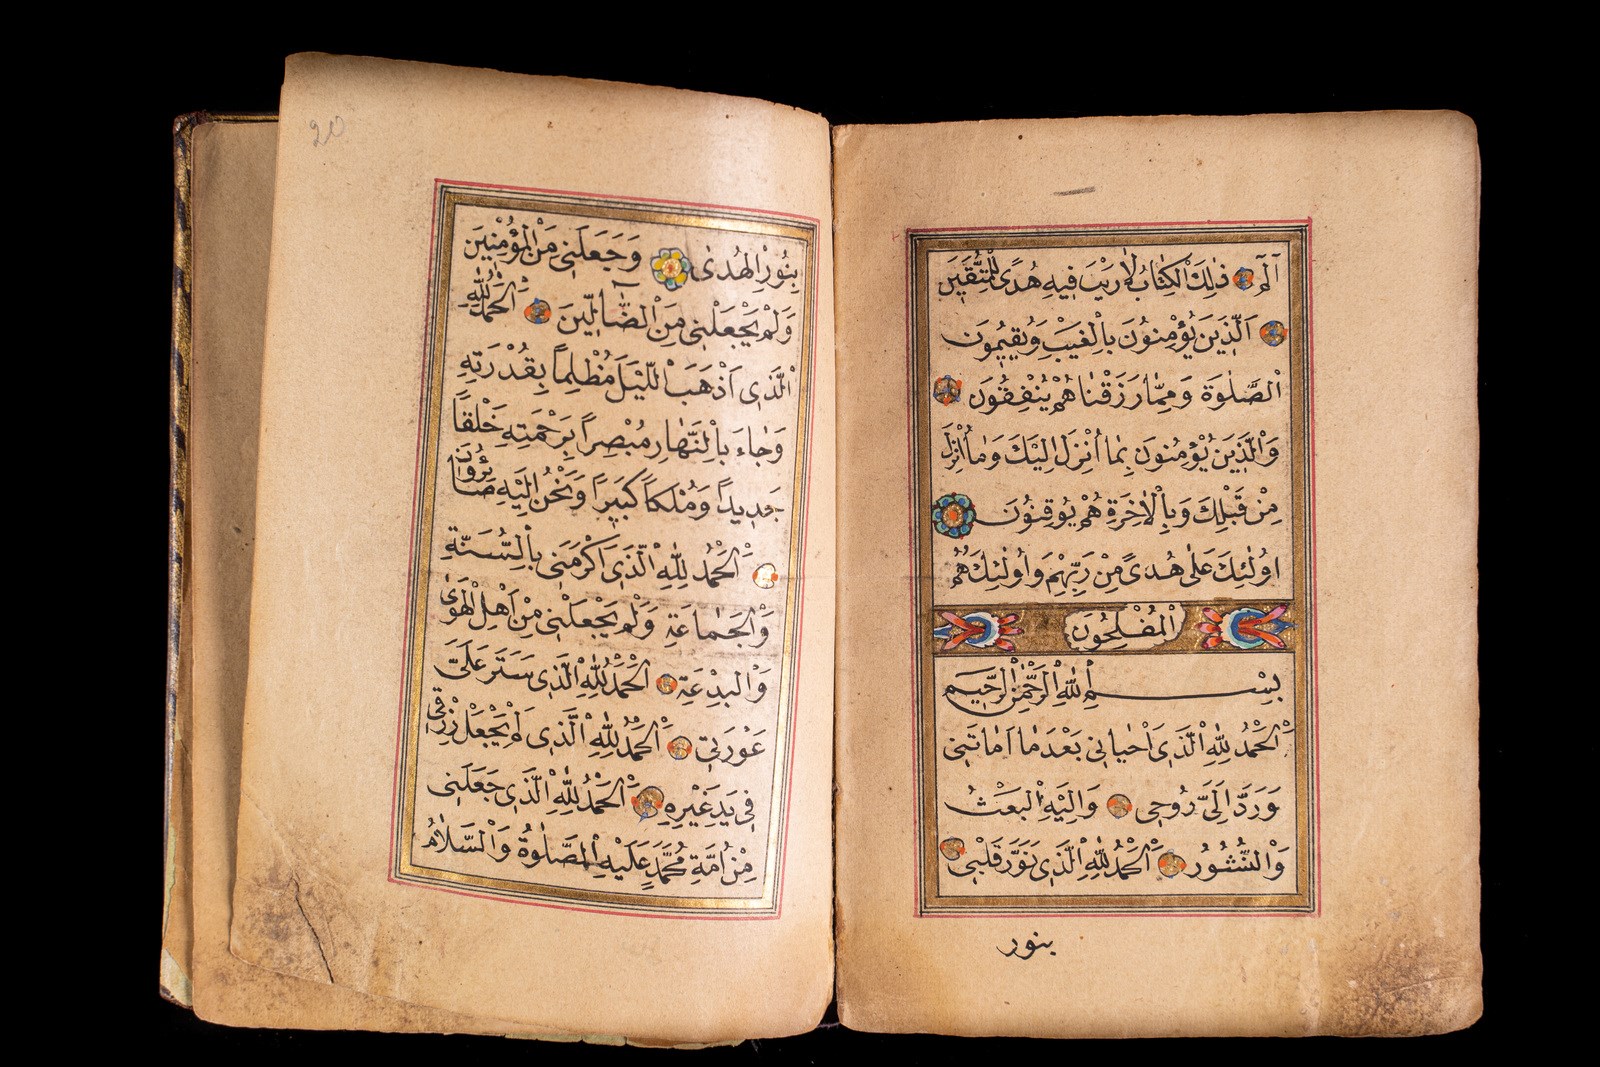 الٓمٓ ذٰلِكَ الْكِتَابُ لَا رَيْبَ فِيهِ هُدًى لِلْمُتَّقِينَ
اَلَّذِينَ يُؤْمِنُونَ بِالْغَيْبِ وَيُقِيمُونَ
الصَّلٰوةَ وَمِمَّا رَزَقْنَاهُمْ يُنْفِقُونَ
وَالَّذِينَ يُؤْمِنُونَ بِمَا اُنْزِلَ اِلَيْكَ وَمَا اُنْزِلَ
مِنْ قَبْلِكَ وَبِالْاٰخِرَةِ هُمْ يُوقِنُونَ
اُولٰئِكَ عَلٰى هُدًى مِنْ رَبِّهِمْ وَاُولٰئِكَ هُمُ
الْمُفْلِحُونَ
بِسْمِ اللّٰهِ الرَّحْمٰنِ الرَّحِيمِ
اَلْحَمْدُ لِلّٰهِ الَّذِى اَحْيَانِى بَعْدَمَا اَمَاتَنِى
وَرَدَّ اِلَىَّ رُوحِى وَاِلَيْهِ الْبَعْثُ
وَالنُّشُورُ اَلْحَمْدُ لِلّٰهِ الَّذِى نَوَّرَ قَلْبِى
بنور
بِنُورِ الْهُدٰى وَجَعَلَنِى مِنَ الْمُؤْمِنِينَ
وَلَمْ يَجْعَلْنِى مِنَ الضَّالِّينَ اَلْحَمْدُ لِلّٰهِ
الَّذِى اَذْهَبَ اللَّيْلَ مُظْلِمًا بِقُدْرَتِهِ
وَجَاءَ بِالنَّهَارِ مُبْصِرًا بِرَحْمَتِهِ خَلْقًا
جَدِيدًا وَمُلْكًا كَبِيرًا وَنَحْنُ اِلَيْهِ صَائِرُونَ
اَلْحَمْدُ لِلّٰهِ الَّذِى اَكْرَمَنِى بِالسُّنَّةِ
وَالْجَمَاعَةِ وَلَمْ يَجْعَلْنِى مِنْ اَهْلِ الْهَوٰى
وَالْبِدْعَةِ اَلْحَمْدُ لِلّٰهِ الَّذِى سَتَرَ عَلَىَّ
عَوْرَتِى اَلْحَمْدُ لِلّٰهِ الَّذِى لَمْ يَجْعَلْ رِزْقِى
فِى يَدِ غَيْرِهِ اَلْحَمْدُ لِلّٰهِ الَّذِى جَعَلَنِى
مِنْ اُمَّةِ مُحَمَّدٍ عَلَيْهِ الصَّلٰوةُ وَالسَّلَامُ
20